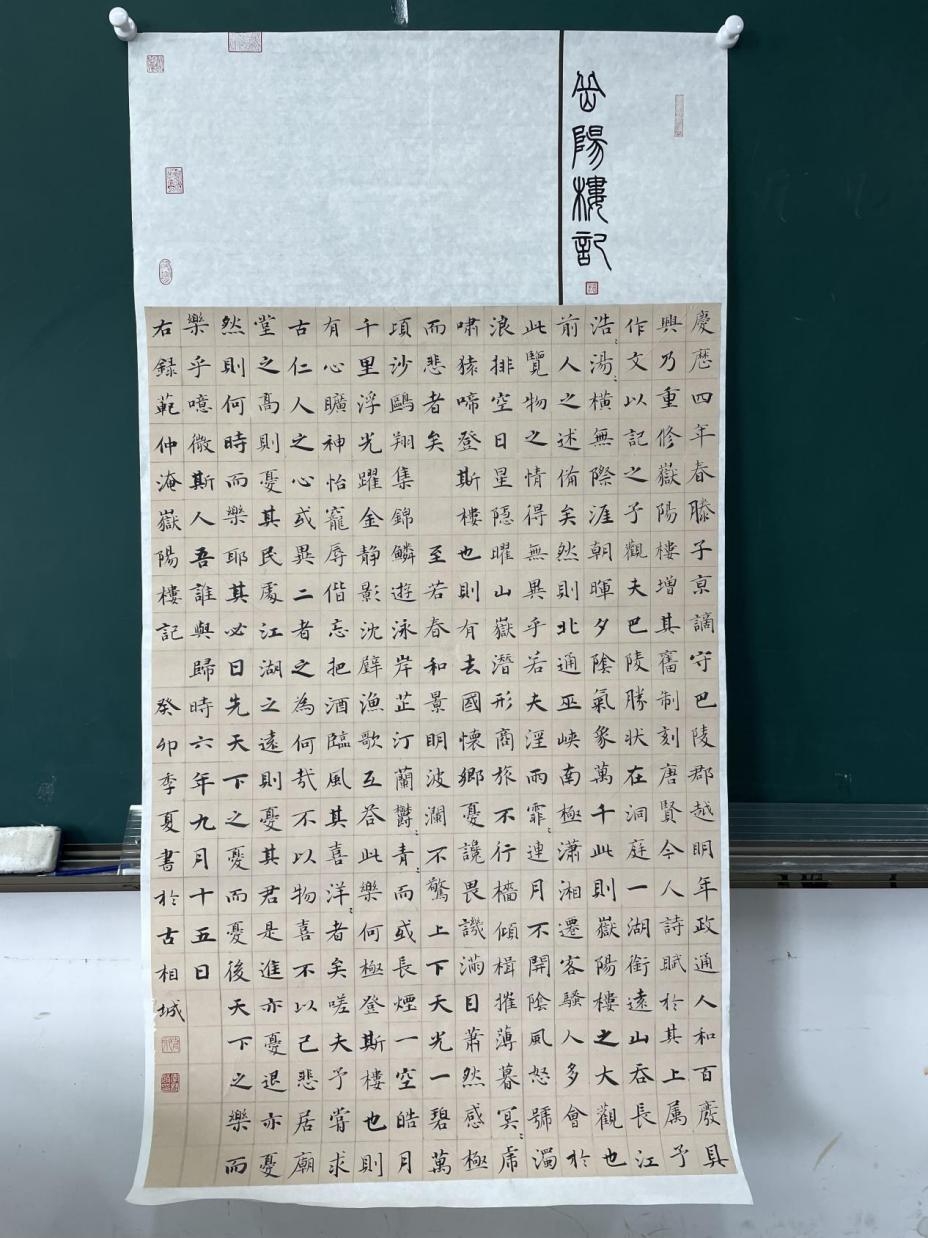 岳陽樓記
慶歷四年春滕子京謫守巴陵郡越明年政通人和百廢具
興乃重修嶽陽樓增其舊制刻唐賢今人詩賦於其上属予
作文以記之予觀夫巴陵勝狀在洞庭一湖銜遠山吞長江
浩〻湯〻橫無際涯朝暉夕陰氣象萬千此則嶽陽樓之大觀也
前人之述俻矣然則北通巫峽南極瀟湘遷客騷人多會於
此覽物之情得無異乎若夫淫雨霏〻連月不開陰風怒號濁
浪排空日星隱曜山嶽潛形商旅不行檣傾楫摧薄暮冥〻虎
嘯猿啼登斯樓也則有去國懷鄉憂讒畏譏滿目蕭然感極
而悲者矣 至若春和景明波瀾不驚上下天光一碧萬
項沙鷗翔集錦鱗遊泳岸芷汀蘭欝〻青〻而或長煙一空皓月
千里浮光躍金静影沈璧漁歌互荅此樂何極登斯樓也則
有心曠神怡寵辱偕忘把酒臨風其喜洋〻者矣嗟夫予嘗求
古仁人之心或異二者之為何哉不以物喜不以己悲居廟
堂之高則憂其民處江湖之遠則憂其君是進亦憂退亦憂
然則何時而樂耶其必曰先天下之憂而憂後天下之樂而
樂乎噫微斯人吾誰與歸時六年九月十五日
右録範仲淹嶽陽樓記 癸卯季夏書於古相城